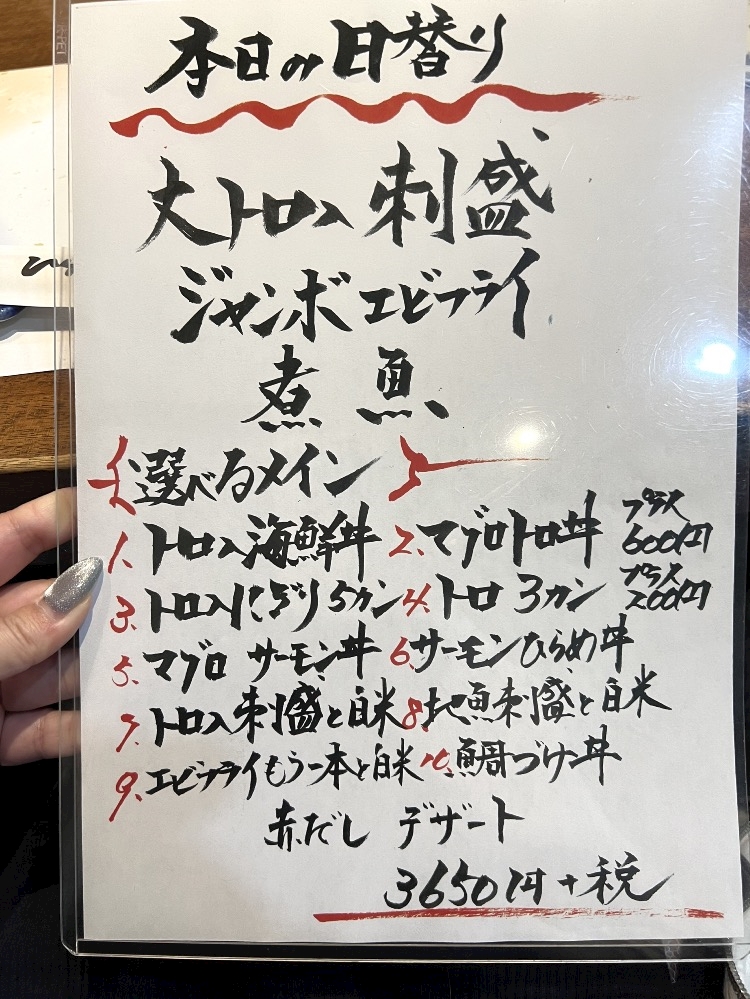 本日の日替り
大トロ入刺盛
ジャンボエビフライ
煮魚
選べるメイン
1. トロ入海鮮丼 2. マグロトロ丼 プラス600円
3. トロ入にぎり5カン 4. トロ3カン プラス200円
5. マグロサーモン丼 6. サーモンひらめ丼
7. トロ入刺盛と白米 8. 地魚刺盛と白米
9. エビフライもう一本と白米 10. 鯛づけ丼
赤だし デザート
3650円+税